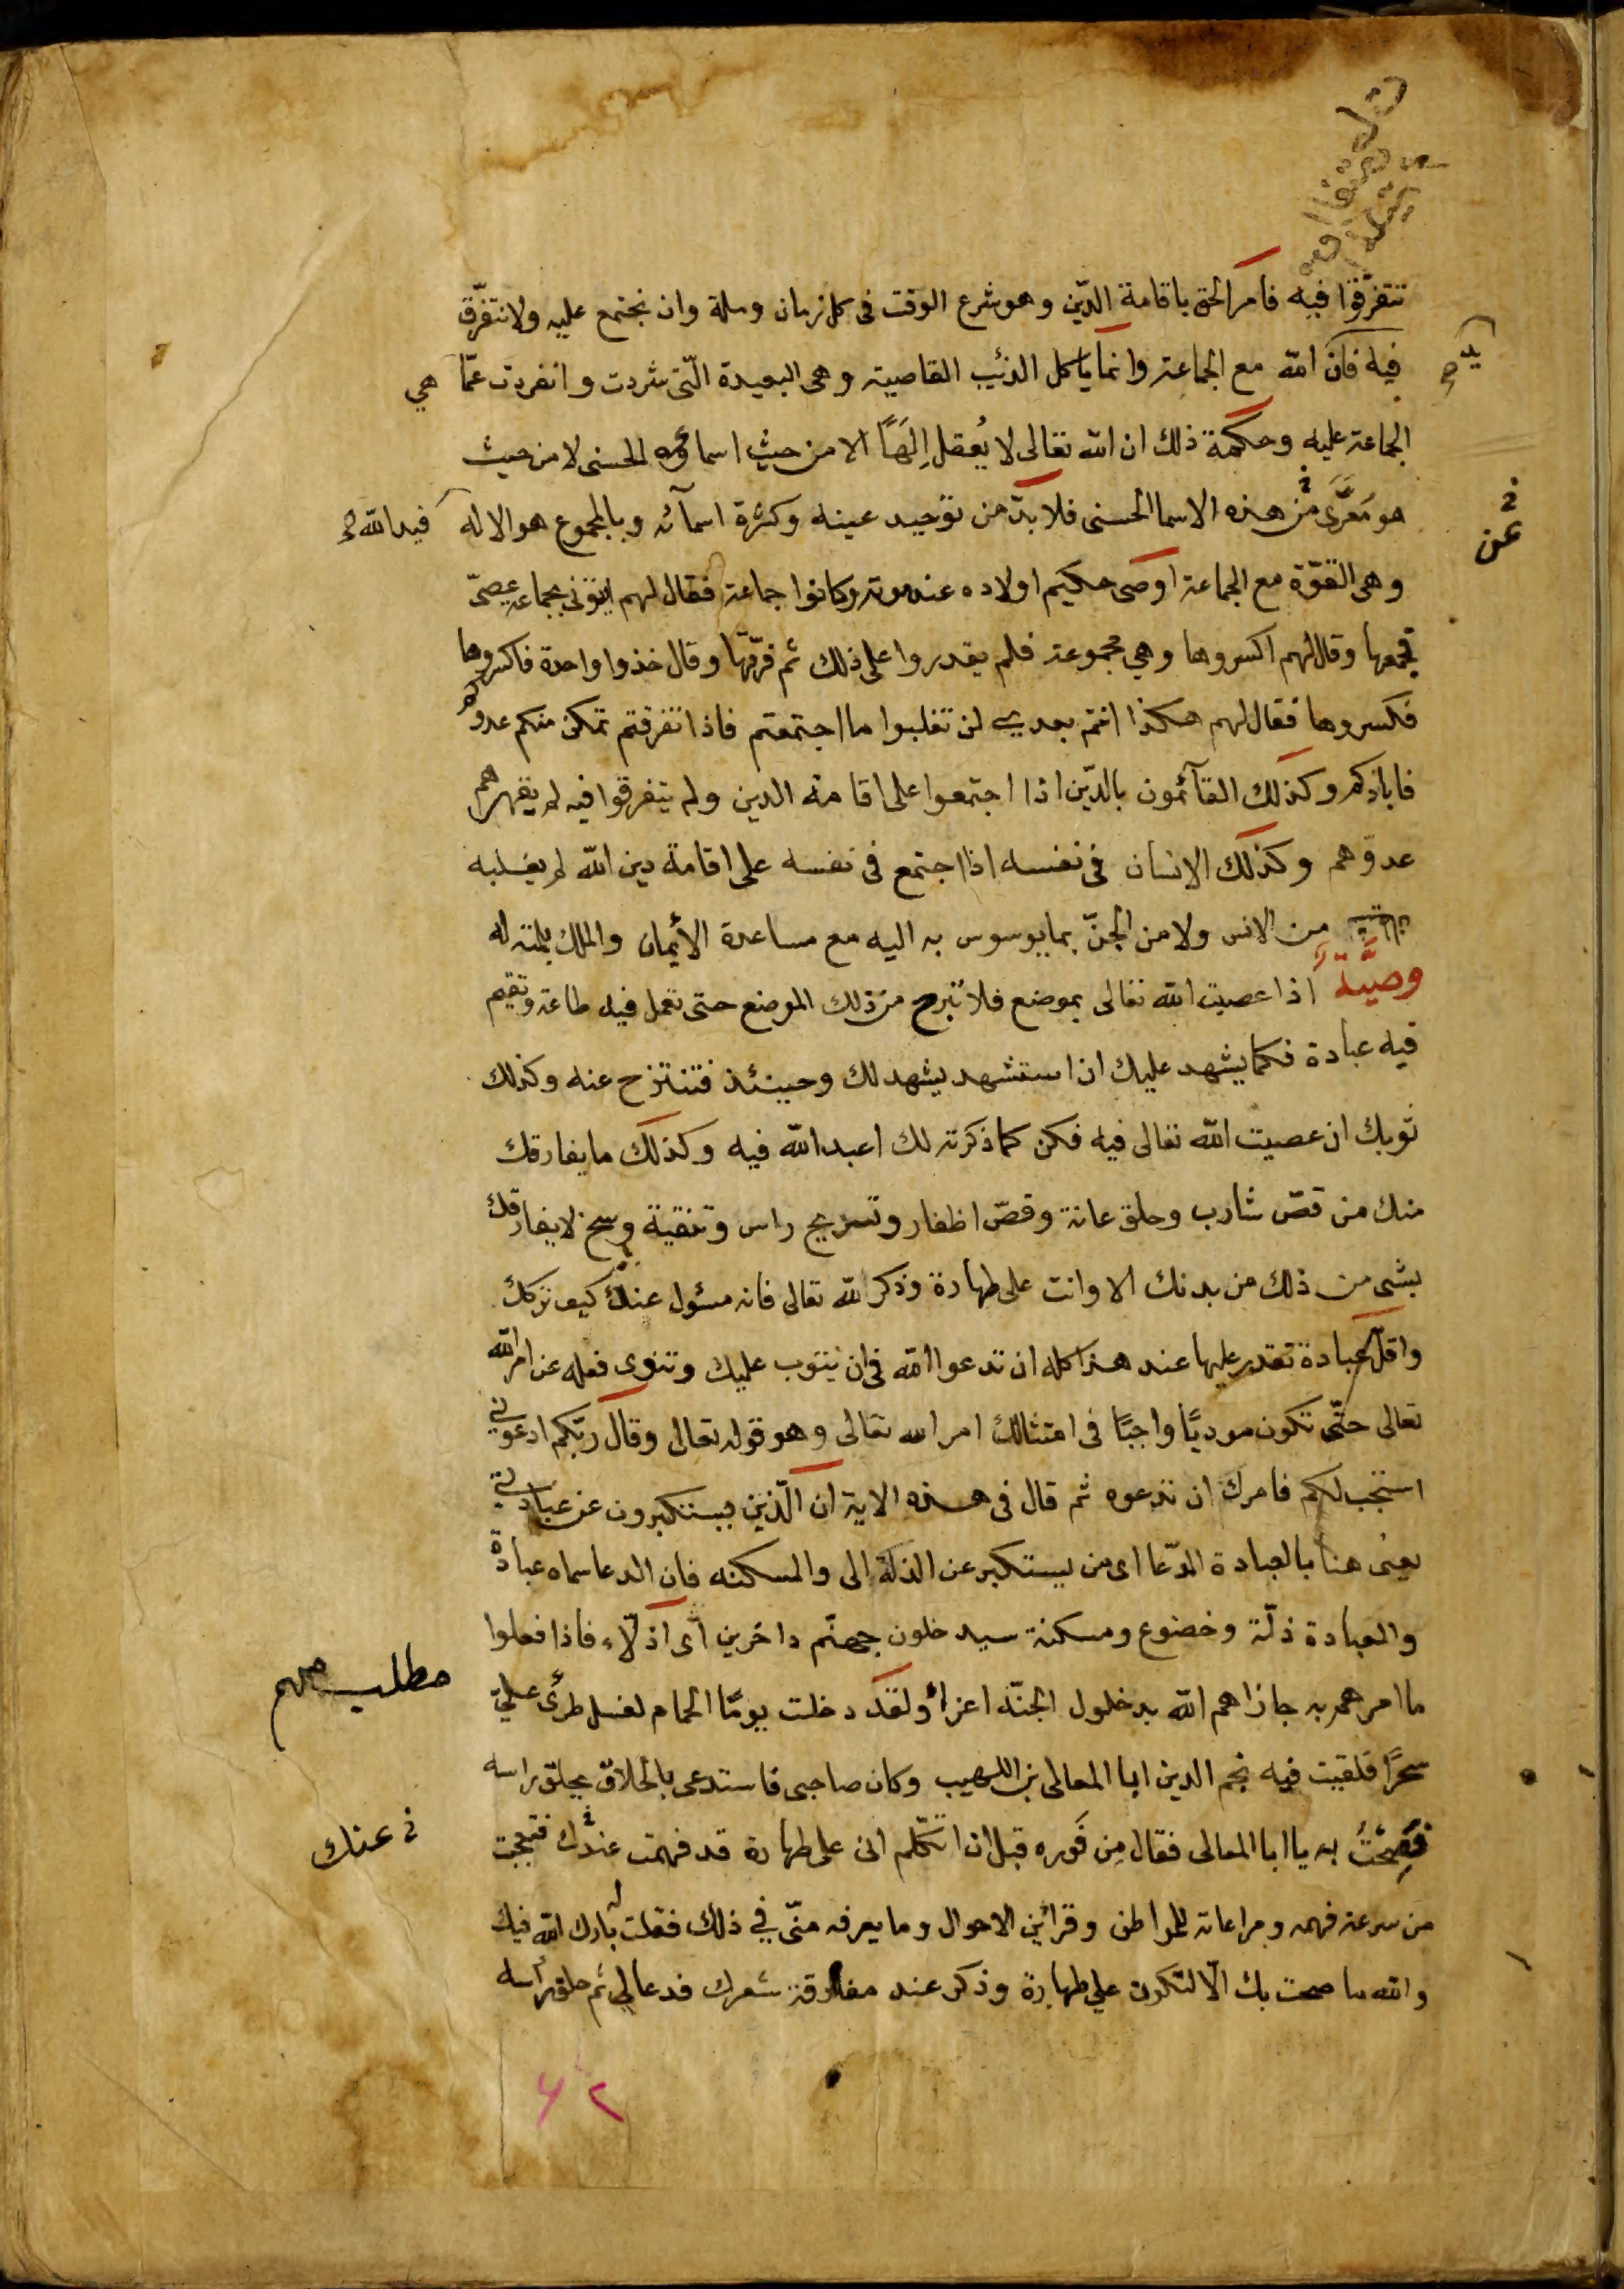 تتفرّقوا فيه فامر الحق باقامة الدّين وهو شرع الوقت فى كل زمان وملة وان نجتمع عليه ولا نتفرّق
فيه فان الله مع الجماعة وانما ياكل الذئب القاصية وهى البعيدة الّتى شردت وانفردت عمّا هي
يد
الجماعة عليه وحكمة ذلك ان الله تعالى لا يُعقل اِلَهًا الا من حيث اسماؤه الحسنى لا من حيث
هو مُعَرَّى من هذه الاسما الحسنى فلا بدّ من توحيد عينه وكثرة اسمآئه وبالمجموع هو الاله فيد الله
عن
وهى القوّة مع الجماعة اوصى حكيم اولاده عند موته وكانوا جماعة فقال لهم ايتونى بجماعة عصىّ
فجمعها وقال لهم اكسروها وهي مجموعة فلم يقدروا على ذلك ثم فرّقها وقال خذوا واحدة فاكسروها
فكسروها فقال لهم هكذا انتم بعدى لن تغلبوا ما اجتمعتم فاذا تفرقتم تمكن منكم عدوكم
فابادكم وكذلك القآئمون بالدّين اذا اجتمعوا على اقامة الدين ولم يتفرقوا فيه لم يقهرهم
عدوّهم وكذلك الانسان فى نفسه اذا اجتمع فى نفسه على اقامة دين الله لم يغلبه
من الانس ولا من الجنّ بما يوسوس به اليه مع مساعدة الأيمان والملك بلمته له
وصيّة اذا عصيت الله تعالى بموضع فلا تبرح من ذلك الموضع حتى تعمل فيه طاعة وتقيم
فيه عبادة فكما يشهد عليك ان استشهد يشهد لك وحينئذ فتنتزح عنه وكذلك
ثوبك ان عصيت الله تعالى فيه فكن كما ذكرته لك اعبد الله فيه وكذلك ما يفارقك
منك من قصّ شارب وحلق عانة وقصّ اظفار وتسريح راس وتنقية وسخ لا يفارقك
بشى من ذلك من بدنك الا وانت على طهارة وذكر الله تعالى فانه مسئول عنك كيف تركك
واقلّ عبادة تقدر عليها عند هذا كله ان تدعوا الله فى ان يتوب عليك وتنوى فعله عن امر الله
تعالى حتّى تكون موديًا واجبًا فى امتثالك امر الله تعالى وهو قوله تعالى وقال ربّكم ادعونى
استجب لكم فامرك ان تدعوه ثم قال فى هذه الاية انّ الّذين يستكبرون عن عبادتي
يعنى هنا بالعبادة الدّعا اى من يستكبر عن الذلة الى والمسكنه فان الدعا سماه عبادة
والعبادة ذلّة وخضوع ومسكنة سيدخلون جهنّم داخرين اى اذلّاء فاذا فعلوا
ما امرهم به جازاهم الله بدخلول الجنّة اعزاء ولقد دخلت يومًا الحمام لغسل طرئ عليّ
مطلب مهم
سحرًا فلقيت فيه نجم الدين ابا المعالى بن اللهيب وكان صاحبى فاستدعى بالحلاق يحلق راسه
فَصِحْتُ به يا ابا المعالى فقال مِن فَوره قبل ان اتكلّم انى على طهارة قد فهمت عندك فتعجبت
عنك
من سرعة فهمه ومراعاته للمواطن وقرائن الاحوال وما يعرفه منّى في ذلك فقلت له بارك الله فيك
والله ما صحت بك الّا لتكون على طهارة وذكر عند مفارقة شعرك فدعا لي ثم حلق راسه
٦٢